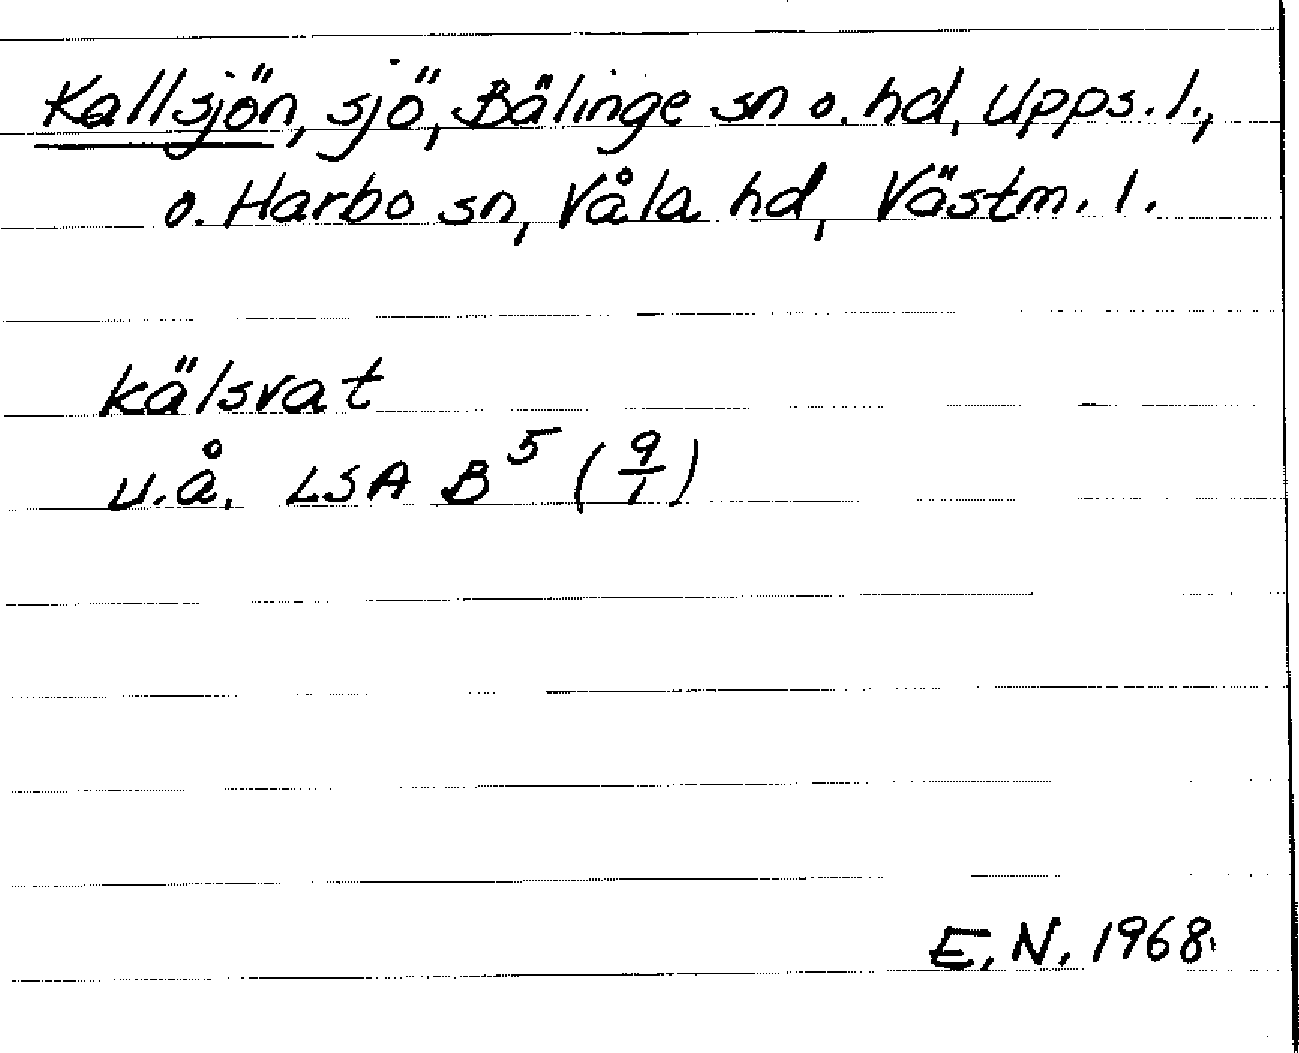 Kallsjön, sjö, Bälinge sn o. hd, Upps. l.,
o. Harbo sn, Våla hd, Västm. l.
kälsvat
u.å. LSA B⁵ (9/1)
E. N. 1968.